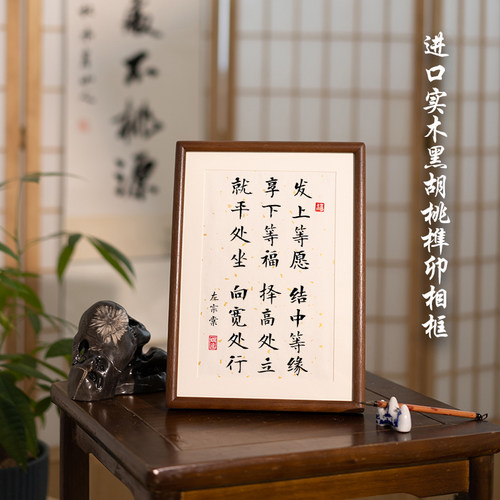 进口实木黑胡桃榫卯相框
发上等愿 结中等缘
享下等福 择高处立
就平处坐 向宽处行
左宗棠
不桃源